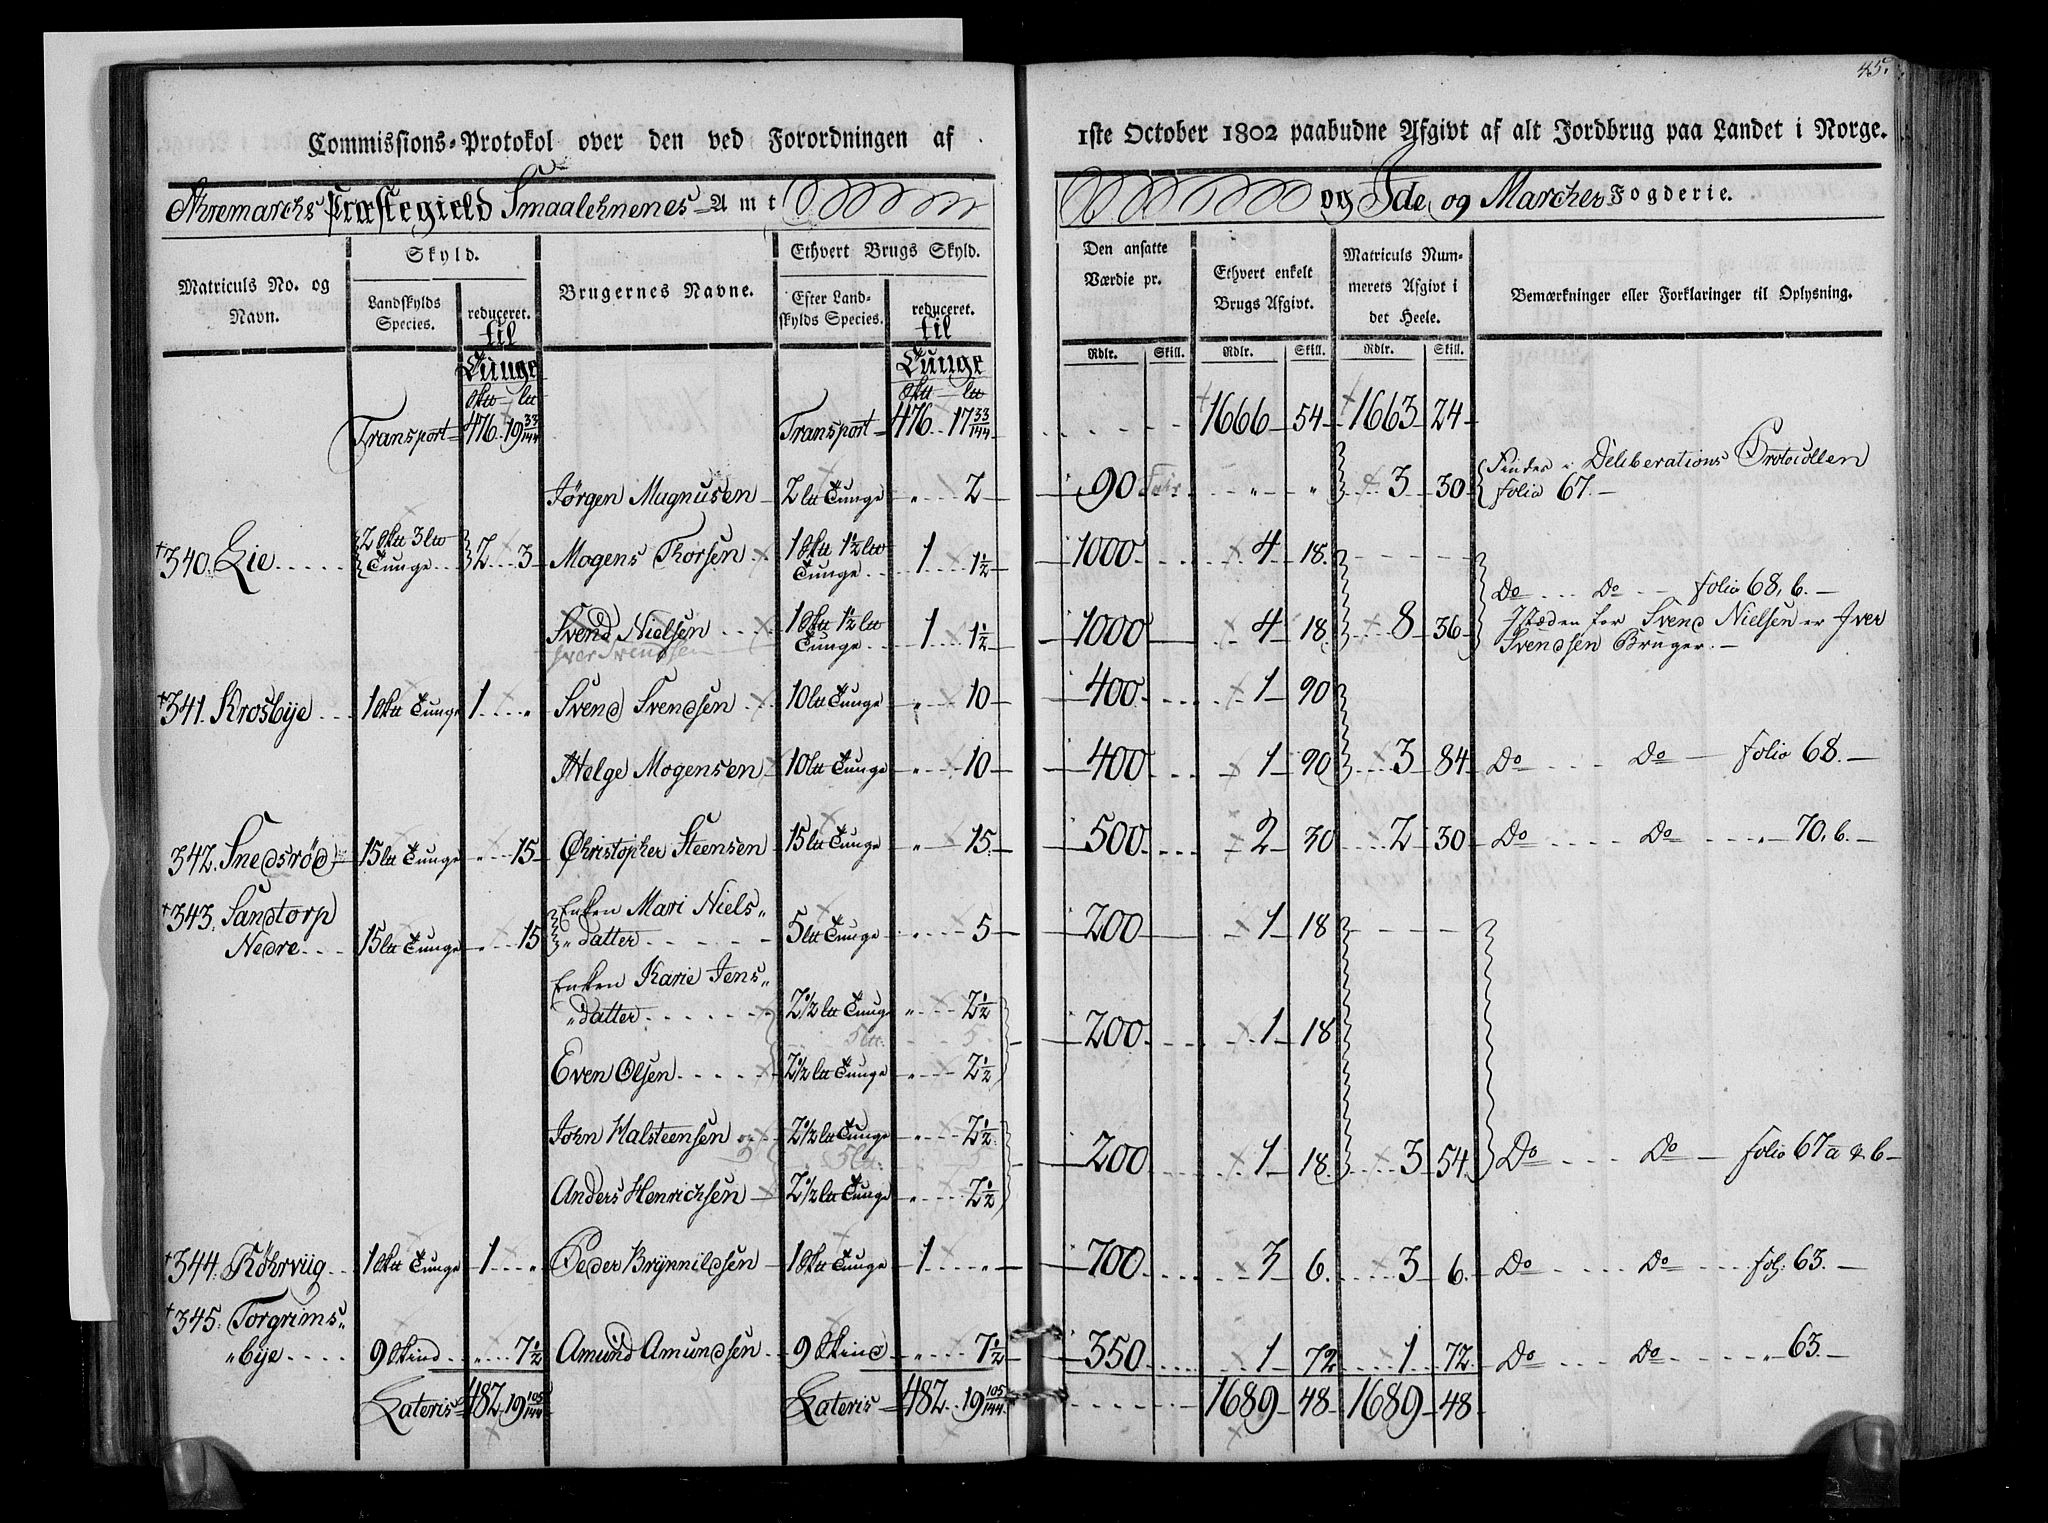 45.
Commissions-Protokol over den ved Forordningen af
1ste October 1802 paabudne Afgivt af alt Jordbrug paa Landet i Norge.
Ahremarchs Præstegield Smaalehnenes Amt
og Ide og Marcher Fogderie.
Matriculs No. og Navn.
Skyld.
Landskylds Species.
reduceret.
til
Tunge
Brugernes Navne.
Ethvert Brugs Skyld.
Efter Landskylds Species.
reduceret.
til
Tunge
Den ansatte Værdie pr.
Ethvert enkelt Brugs Afgivt.
Matriculs Nummerets Afgivt i det Heele.
Bemærkninger eller Forklaringer til Oplysning.
Rdlr. Skill. Rdlr. Skill. Rdlr. Skill.
Transport 476 19 33/144 Transport 476 17 33/144 1666 54 1663 24
Jörgen Magnusen 2 ltt Tunge " 2 90 " " 3 30 Findes i Deliberations Protocollen
folio 67.
340. Lie 2 Sktt 3 ltt Tunge 2 3 Mogens Thorsen 1 Sktt 1½ ltt Tunge 1 1½ 1000 4 18
Svend Nielsen 1 Sktt 1½ ltt Tunge 1 1½ 1000 4 18 8 36 Do Do folio 68, b.
Iver Svendsen
Istæden for Svend Nielsen er Iver
Svendsen Bruger.
341. Krosbye 1 Sktt Tunge 1 " Svend Svendsen 10 ltt Tunge " 10 400 1 90
Helge Mogensen 10 ltt Tunge " 10 400 1 90 3 84 Do Do folio 68.
342. Snedsröd 15 ltt Tunge " 15 Christopher Steensen 15 ltt Tunge " 15 500 2 30 2 30 Do Do " 70, b.
343. Sandtorp
Nedre 15 ltt Tunge " 15 Enken Mari Niels"
"datter 5 ltt Tunge " 5 200 1 18
Enken Karie Jens"
"datter 2½ ltt Tunge " 2½ 200 1 18
5 ltt 5
Even Olsen 2½ ltt Tunge " 2½
John Halsteensen 2½ ltt Tunge " 2½ 200 1 18 3 54 Do Do folio 67 a & b
5 ltt 5
Anders Henrichsen 2½ ltt Tunge " 2½
344. Röhrviig 1 Sktt Tunge 1 " Peder Brynnildsen 1 Sktt Tunge 1 " 700 3 6 3 6 Do Do fol: 63.
345. Torgrims"
"bye 9 Skind " 7½ Amund Amundsen 9 Skind " 7½ 350 1 72 1 72 Do Do " 63.
Lateris 482 19 105/144 Lateris 482 19 105/144 1689 48 1689 48